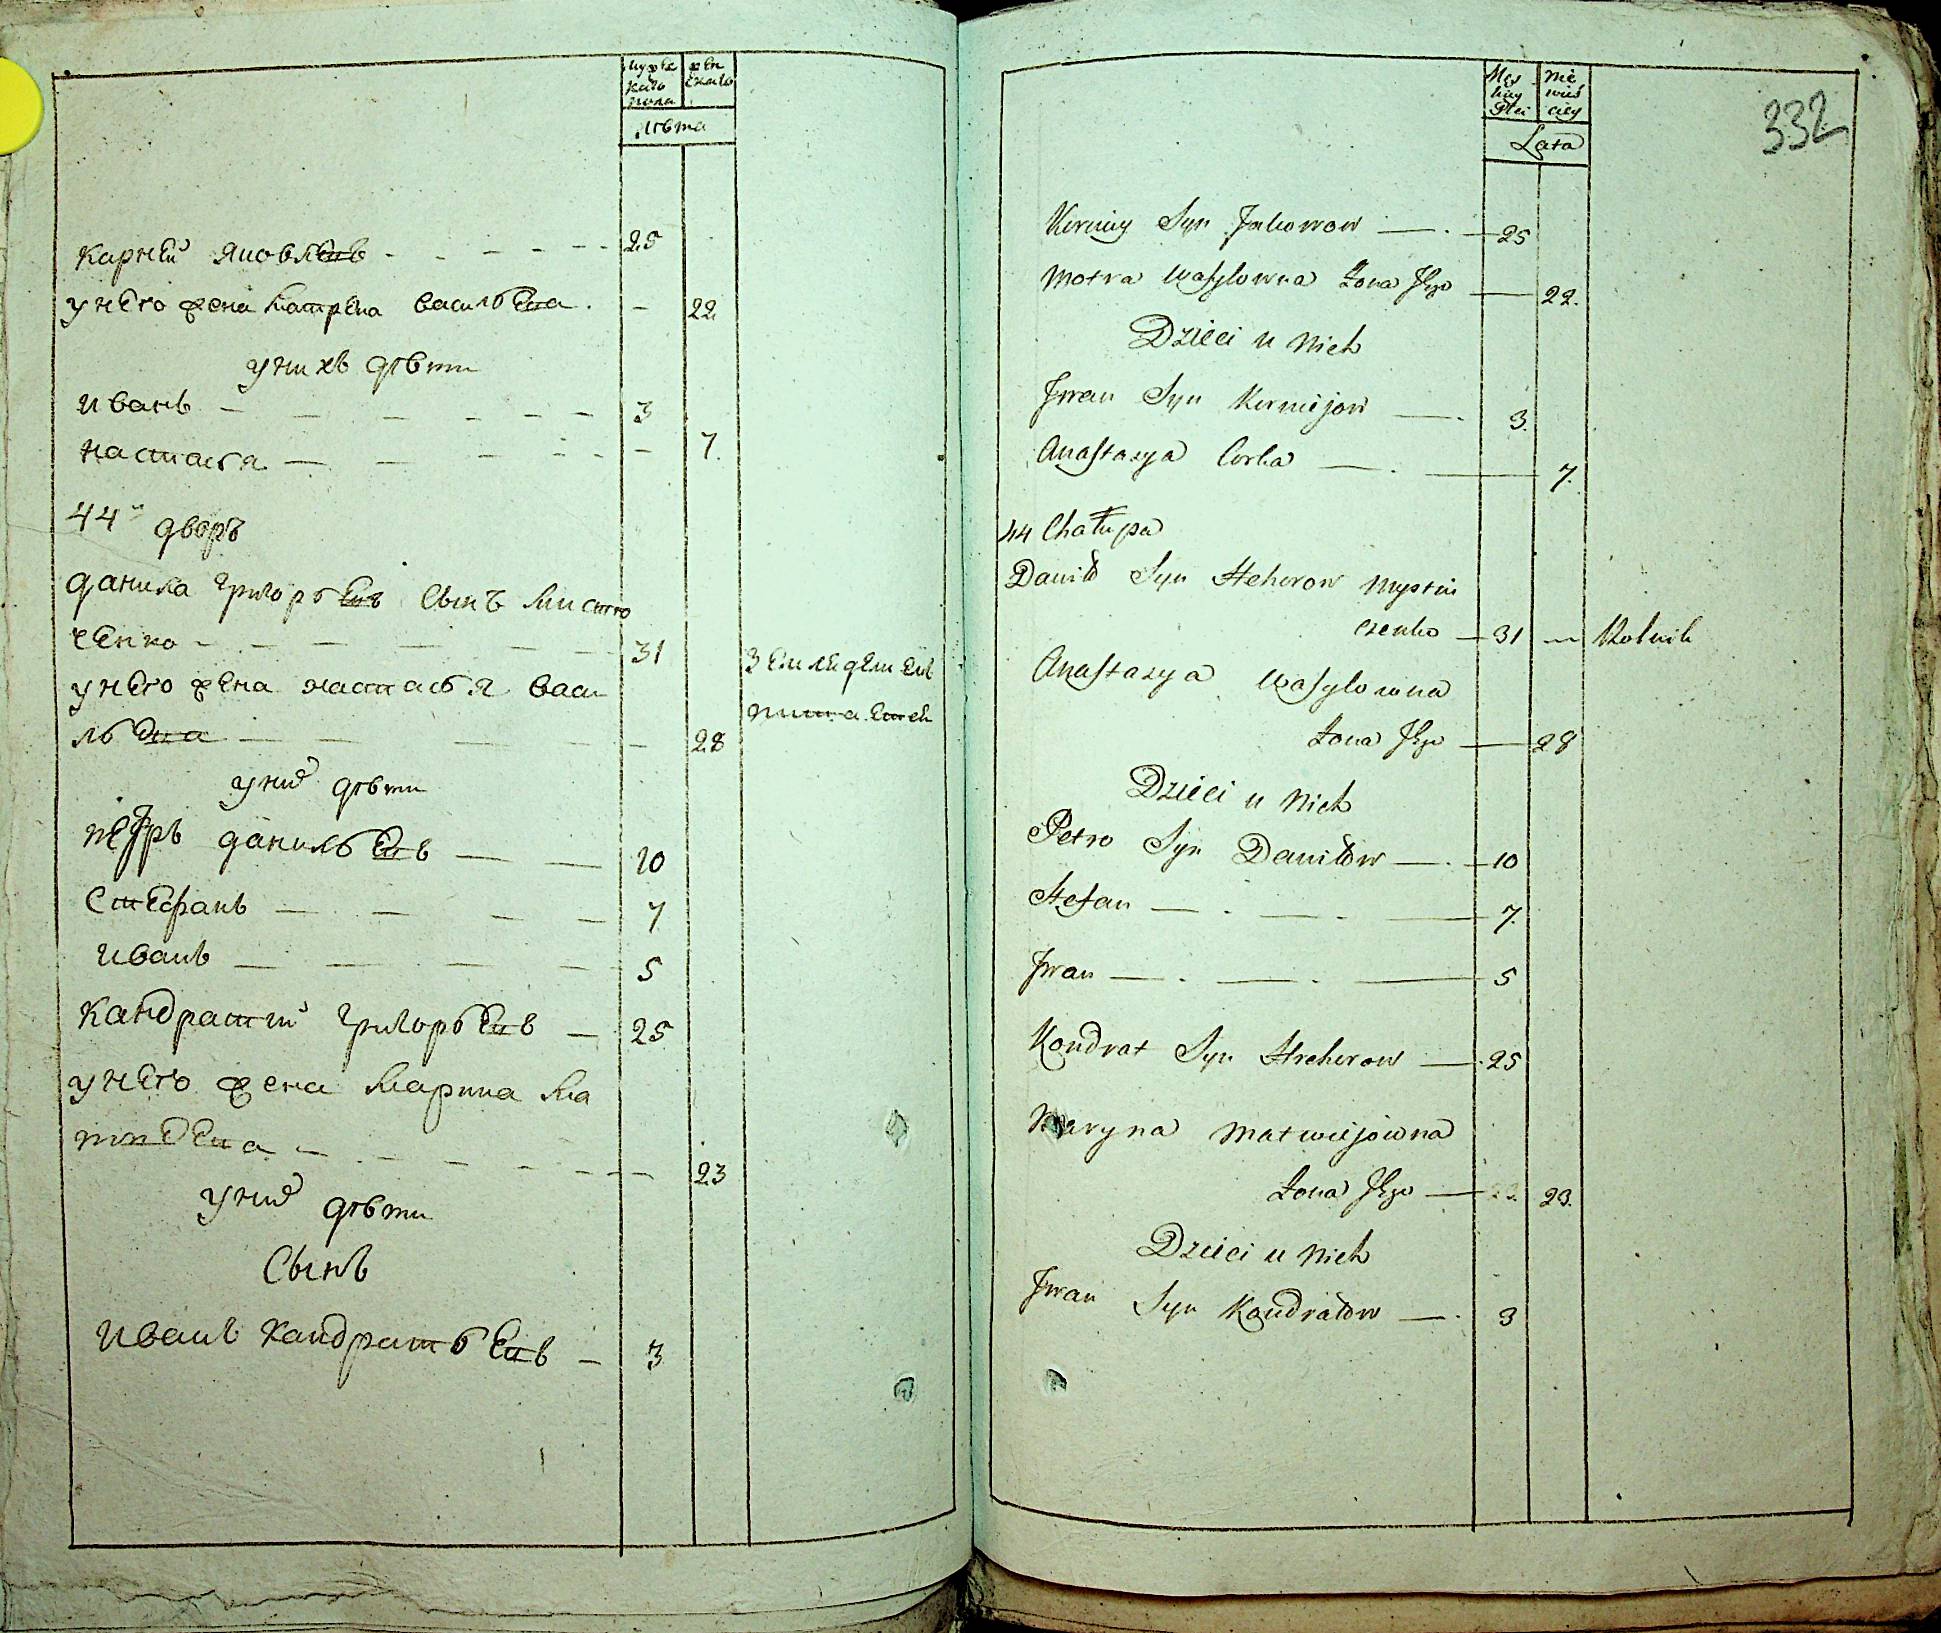 мужска
каго
пола
жен
скаго
лѣта
карнѣй яковлевъ 25
у него жена матрена василева 22
у нихъ дѣти
иванъ 3
настася 7
44й дворъ
данила григорьевъ сынъ мистю
ченко 31
у него жена настасья васи
льева 28
земледелием
питается
у них дѣти
петръ данильевъ 10
стефанъ 7
иванъ 5
кандратий григорьевъ 25
у него жена марина ма
тфеева 23
у них дѣти
Сынъ
иванъ кандратьевъ 3
332
Męz
kiey
Płci
nie
wieś
ciey
Lata
Kerniey Syn Jakowow 25
Motra Wasylowna Zona Jego 22.
Dzieci u Nich
Jwan Syn Kerniejow 3.
Anastazya Corka 7.
44 Chałupa
Daniło Syn Hehorow Mystiu
czenko 31 Rolnik
Anastazya Wasylowna
Zona Jego 28
Dzieci u Nich
Petro Syn Daniłow 10
Stefan 7.
Jwan 5
Kondrat Syn Hrehorow 25
Maryna Matwiejowna
Zona Jego 23.
Dzieci u Nich
Jwan Syn Kondratow 3